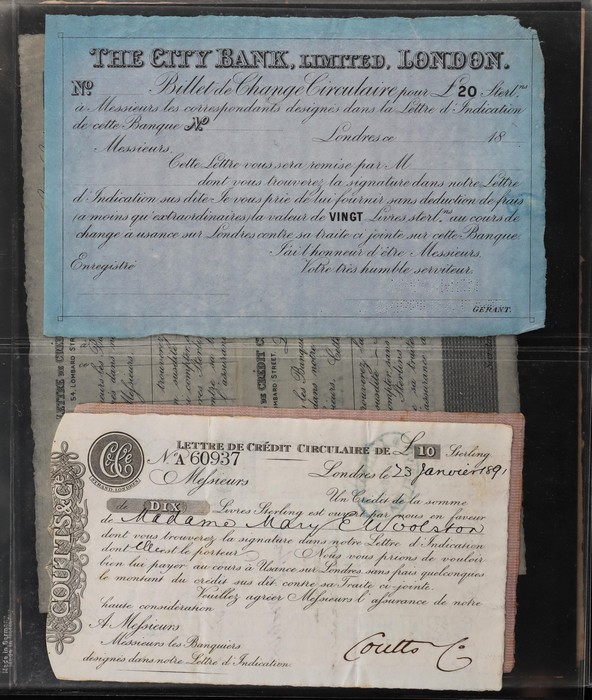 THE CITY BANK, LIMITED, LONDON.
No Billet de Change Circulaire pour £20 Sterl.ns
à Messieurs les correspondants désignés dans la Lettre d'Indication
de cette Banque No
Londres ce 18
Messieurs,
Cette Lettre vous sera remise par M
dont vous trouverez la signature dans notre Lettre
d'Indication sus dite. Je vous prie de lui fournir sans deduction de frais
(a moins qu'extraordinaires) la valeur de VINGT Livres sterl.ns au cours de
change à usance sur Londres contre sa traite ci jointe sur cette Banque.
J'ai l'honneur d'être Messieurs,
Enregistré Votre très humble serviteur.
GÉRANT.
54, LOMBARD ST
LOMBARD STREET.
LETTRE DE CRÉDIT CIRCULAIRE DE £10 Sterling
No A 60937
Londres le 23 Janvier 1891
Messieurs
Un Crédit de la somme
de DIX Livres Sterling est ouvert par nous en faveur
de Madame Mary E Woolston
dont vous trouverez la signature dans notre Lettre d'Indication
dont Elle est le porteur. Nous vous prions de vouloir
bien lui payer au cours à Usance sur Londres sans frais quelconques
le montant du crédit sus dit contre sa Traite ci-jointe.
Veuillez agréer Messieurs l'assurance de notre
haute considération
A Messieurs
Messieurs les Banquiers
désignés dans notre Lettre d'Indication.
Coutts & Co
COUTTS & Co.